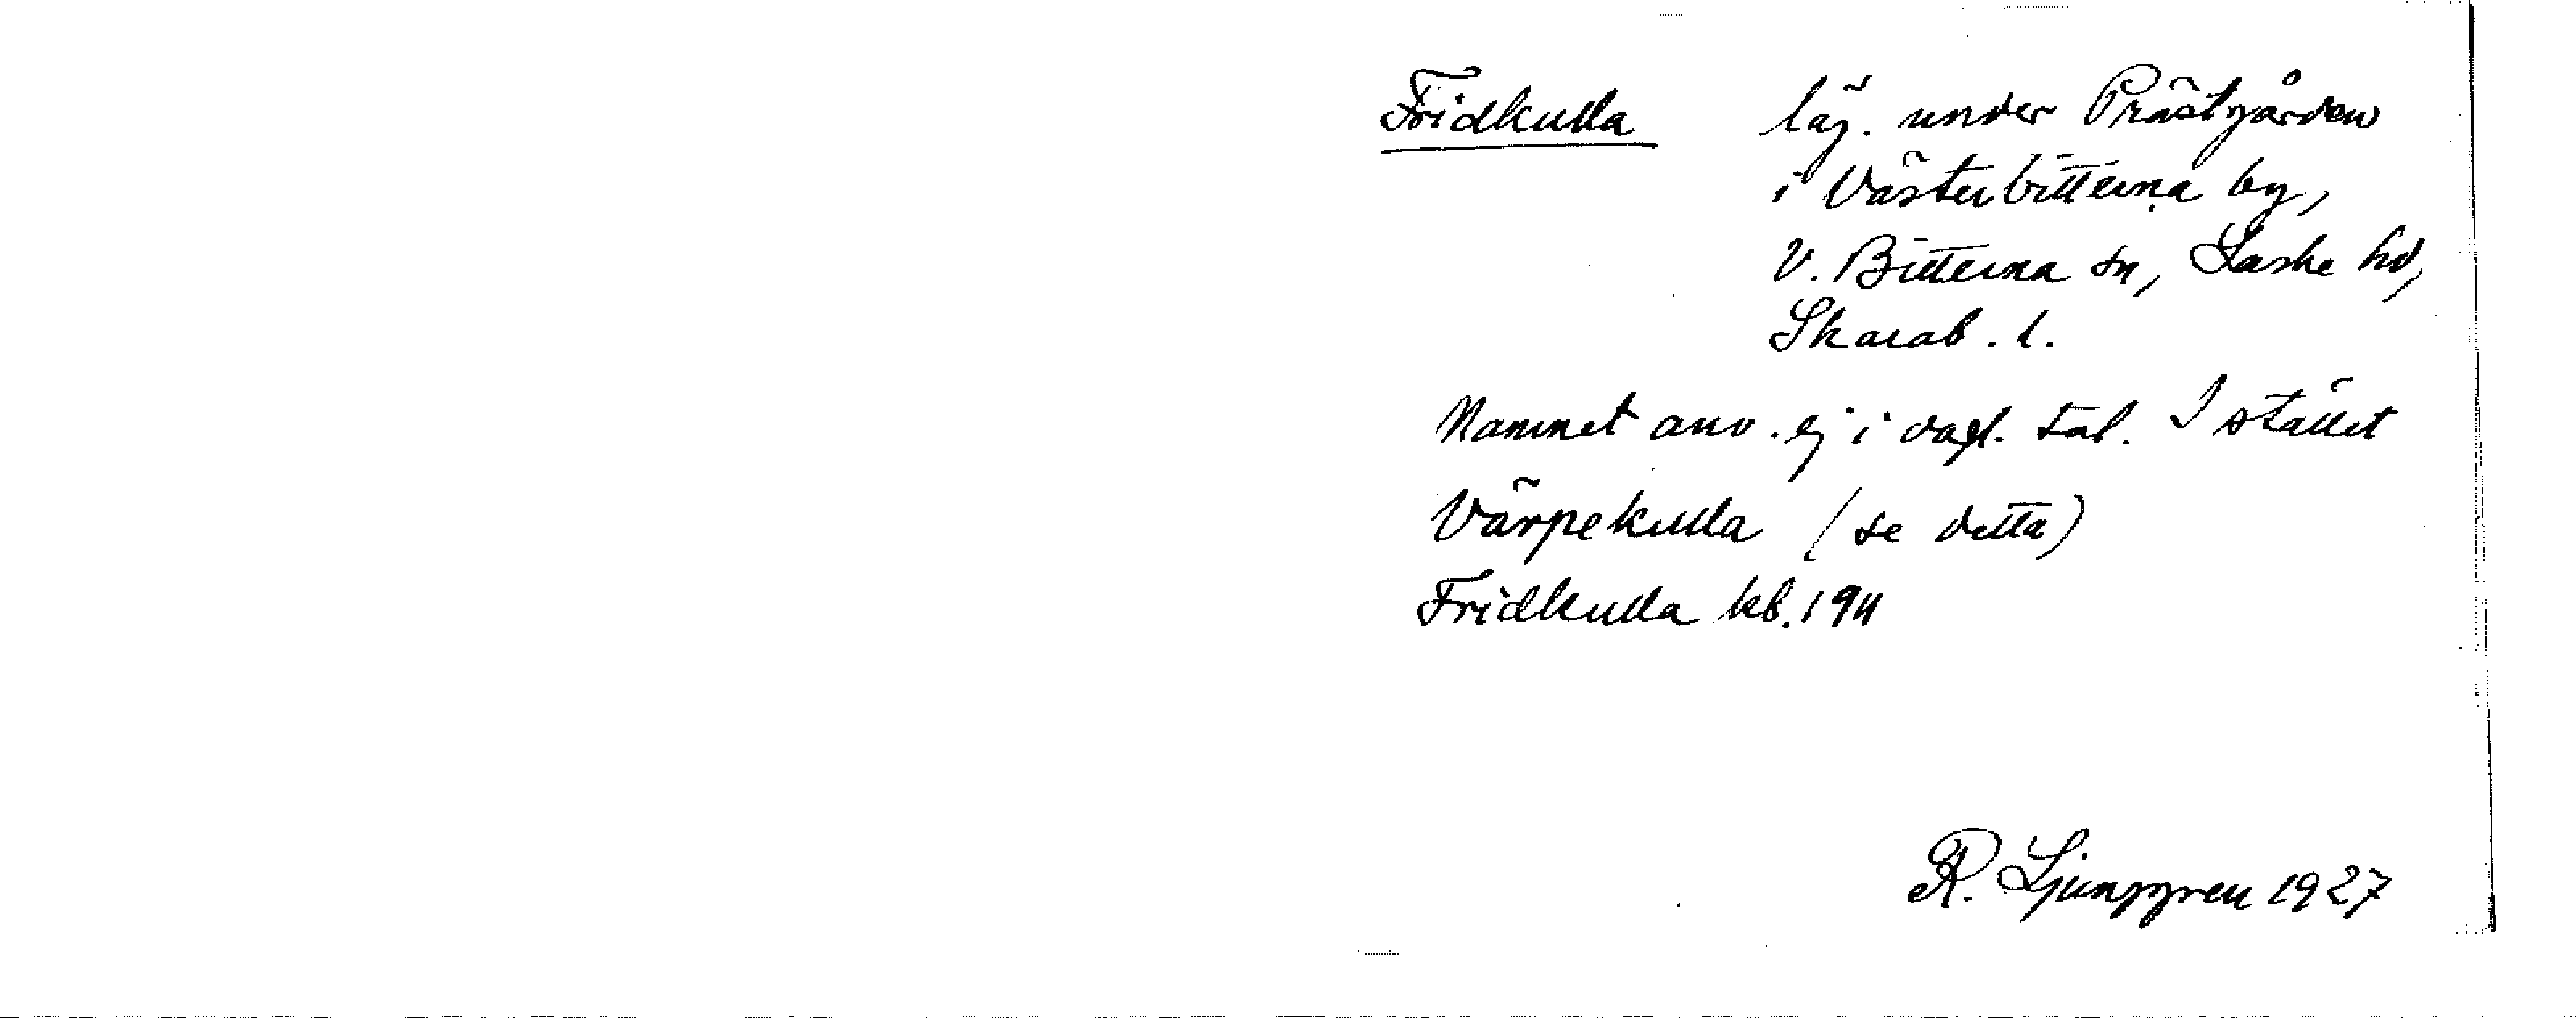 Fridkulla läg. under Prästgården
i Västerbitterna by,
V. Bitterna sn, Laske hd,
Skarab. l.
Namnet anv. ej i dagl. tal. I stället
Värpekulla (se detta)
Fridkulla kb. 1911
R. Ljunggren 1927